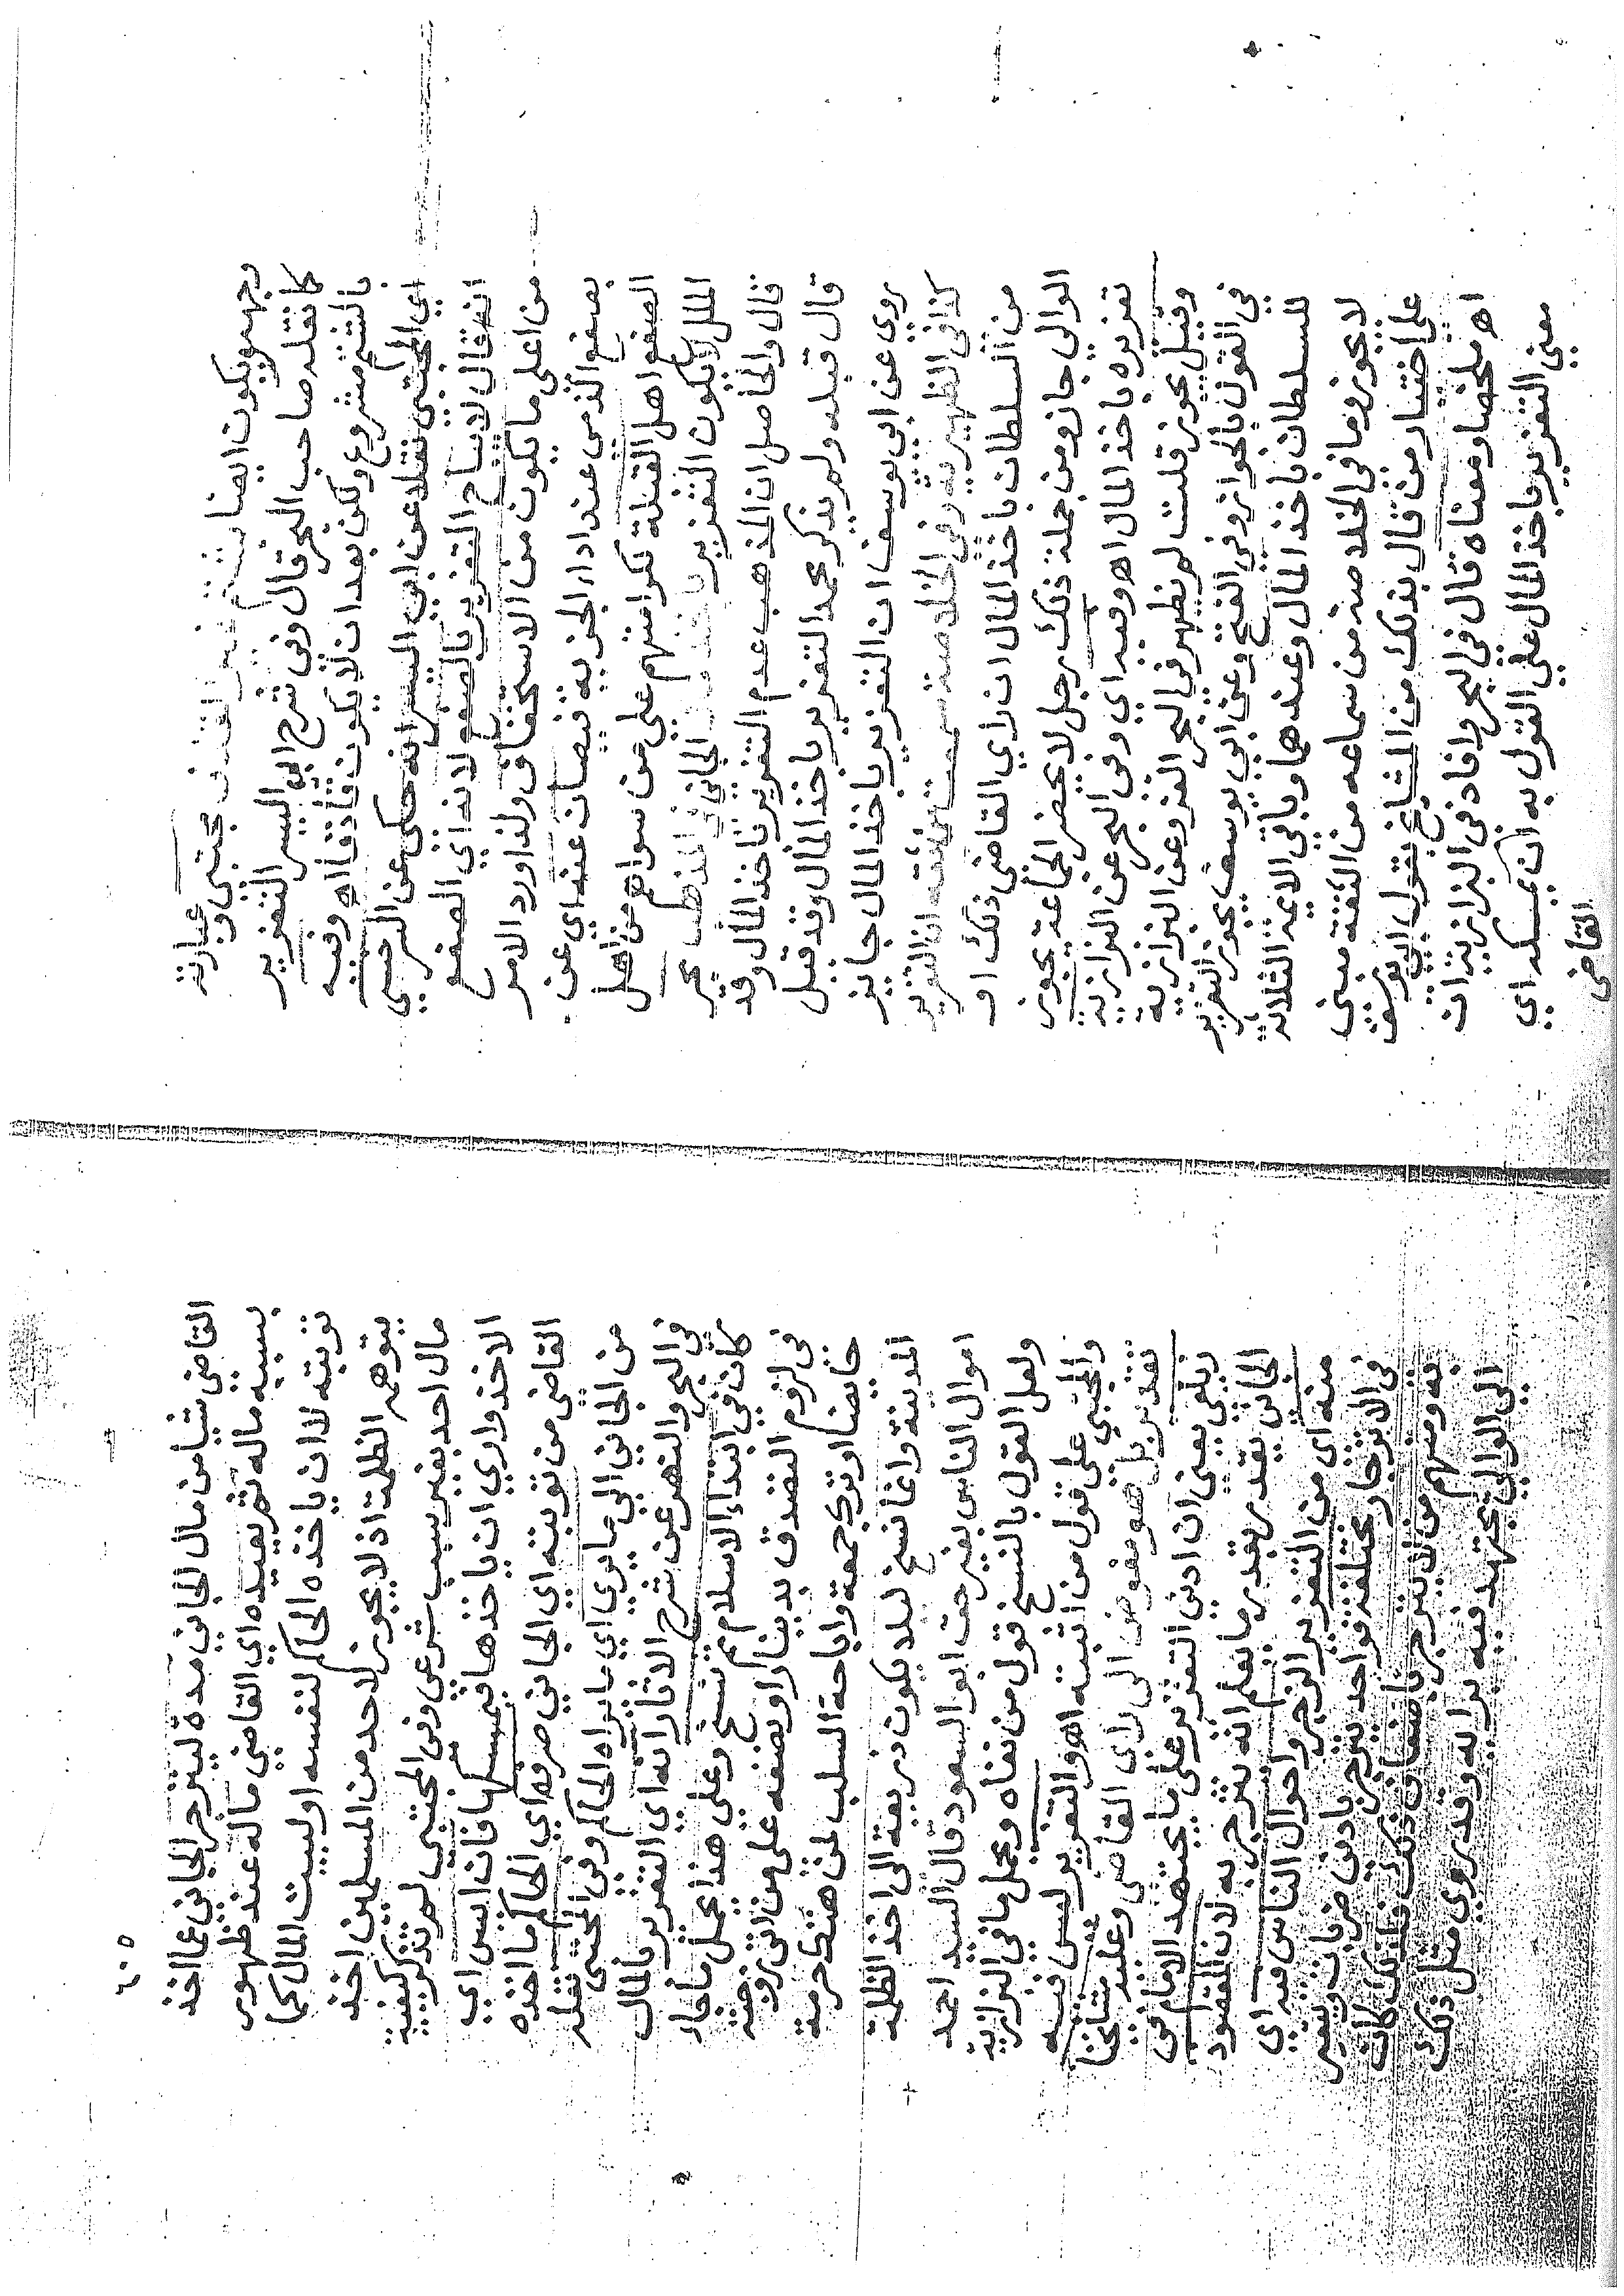 وجهه ويكون ايضا بشتم غير القذف مجتبى وعبارته
كما نقله صاحب البحر قال وفي شرح ابي اليسر التعزير
بالشتم مشروع ولكن بعد ان لا يكون قاذفا اه وفيه
اي المجتبى نقلا عن ابي اليسر انه حكى عن السرخسي
انه قال لا يباح التعزير بالصفع لانه اي الصفع
من اعلى ما يكون من الاستخفاف ولذا ورد الامر
بصفع الذمي عند اداء الجزية فيصان عنه اي عن
الصفع اهل القبلة تكرامتهم على من سواهم من اهل
الملل لا يكون التعزير باخذ مال الجاني في المذهب بحر
قال والحاصل ان المذهب عدم التعزير باخذ المال وقد
قال قبله ولم يذكر محمد التعزير باخذ المال وقد قيل
روي عن ابي يوسف ان التعزير باخذ المال جايز
كذا في الظهيرية وفي الخلاصة سمعت من ثقة ان التعزير
من السلطان باخذ المال ان راي القاضي ذلك او
الوالي جاز ومن جملة ذلك رجل لا يحضر الجماعة يجوز
تعزيره باخذ المال اه وفيه اي وفي البحر عن البزازية
وقيل يجوز قلت لم يظهر في البحر العزو عن البزازية
في القول بالجواز وفي الفتح وعن ابي يوسف يجوز التعزير
للسلطان باخذ المال وعندهما وباقي الايمة الثلاثة
لا يجوز وما في الخلاصة من سماعه من الثقة مبني
على اختيار من قال بذلك من المشايخ بقول ابي يوسف
اه ملخصا ومعناه قال في البحر وافاد في البزازية ان
معنى التعزير باخذ المال على القول به ان يمسكه اي
القاضي
٦٠٥
القاضي شيا من مال الجاني مدة لينزجر الجاني عما اخذ
بسببه ماله ثم يعيده اي القاضي ماله عند ظهور
توبته لا ان ياخذه الحاكم لنفسه او لبيت المال كما
يتوهمه الظلمة اذ لا يجوز لاحد من المسلمين اخذ
مال احد بغير سبب شرعي وفي المجتبى لم يذكر كيفية
الاخذ واري ان ياخذها فيمسكها فان ايس اي
القاضي من توبته اي الجاني صرفه اي الحاكم ما اخذه
من الجاني الى ما يرى اي ما يراه الحاكم وفي المجتبى نقله
في البحر والنهر عن شرح الاثار انه اي التعزير بالمال
كان في ابتداء الاسلام ثم نسخ وعلى هذا يحمل ما جاء
في لزوم التصدق بدينار او بنصفه على من اتى زوجته
حايضا وترك جمعة واباحة السلب لمن هتك حرمة
المدينة وانما نسخ ليلا يكون ذريعة الى اخذ الظلمة
اموال الناس بغير حق ابو السعود قال السيد احمد
ولعل القول بالنسخ قول من نفاه ويحمل ما في البزازية
والمجتبى على قول من اثبته اه والتعزير ليس فيه
تقدير بل هو مفوض الى راى القاضي وعليه مشايخنا
زيلعي يعني ان ادنى التعزير على ما يجتهد الامام في
الجاني بقدر ما يعلم انه ينزجر به لان المقصود
منه اى من التعزير الزجر واحوال الناس فيه اي
في الانزجار مختلفة فواحد ينزجر بادنى ضربات ويتغير
بذلك ومنهم من لا ينزجر باضعاف ذلك فلذلك كان
الى الوالي يجتهد فيه برايه وقد روي مثل ذلك